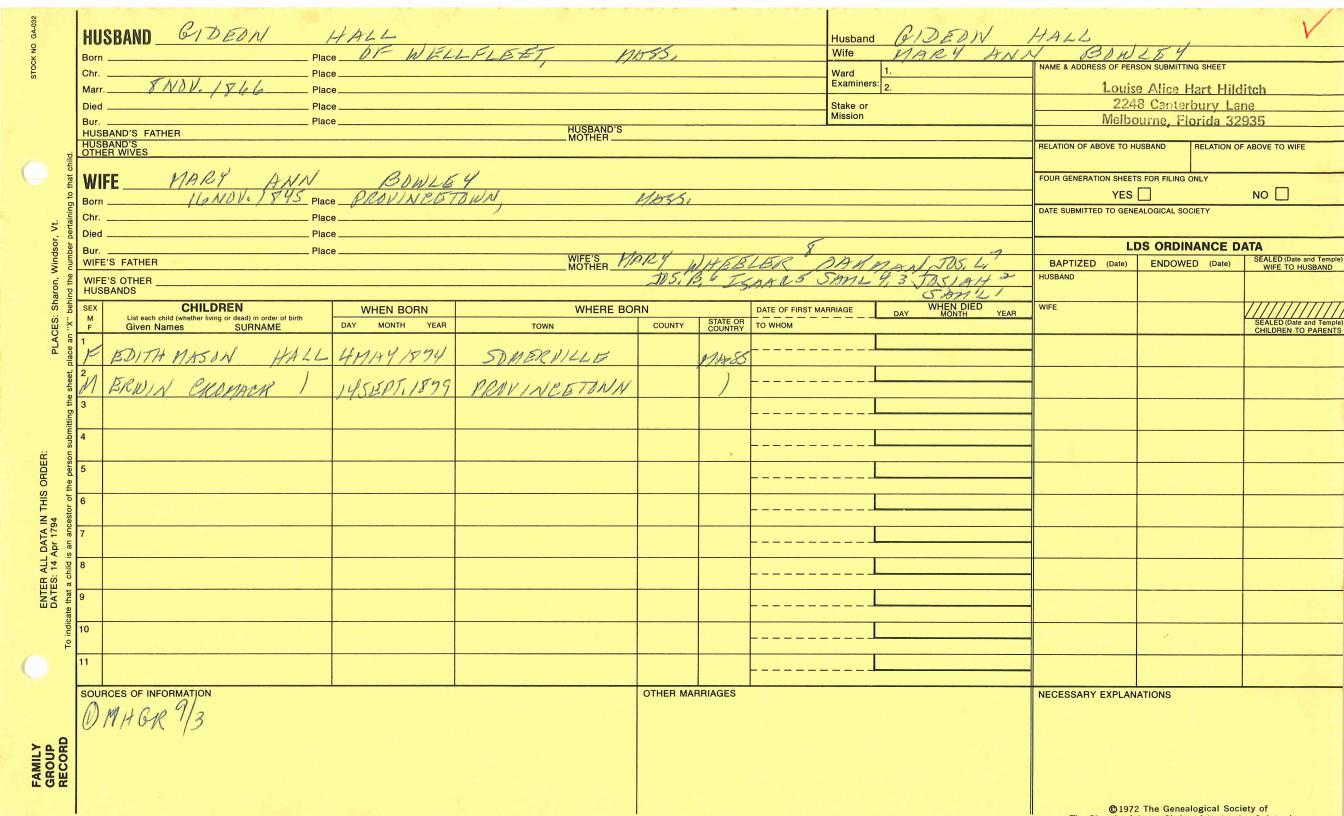 STOCK NO. GA-032
HUSBAND GIDEON HALL
Born Place OF WELLFLEET, MASS.
Chr. Place
Marr. 8 NOV. 1866 Place
Died Place
Bur. Place
HUSBAND'S FATHER HUSBAND'S MOTHER
HUSBAND'S OTHER WIVES
Husband GIDEON HALL
Wife MARY ANN BOWLEY
Ward Examiners: 1.
2.
Stake or Mission
NAME & ADDRESS OF PERSON SUBMITTING SHEET
Louise Alice Hart Hilditch
2248 Canterbury Lane
Melbourne, Florida 32935
RELATION OF ABOVE TO HUSBAND RELATION OF ABOVE TO WIFE
FOUR GENERATION SHEETS FOR FILING ONLY
YES NO
DATE SUBMITTED TO GENEALOGICAL SOCIETY
WIFE MARY ANN BOWLEY
Born 16 NOV. 1845 Place PROVINCETOWN, MASS.
Chr. Place
Died Place
Bur. Place
WIFE'S FATHER WIFE'S MOTHER MARY WHEELER 8 OAKMAN, JOS. L. 7
WIFE'S OTHER HUSBANDS JOS. B. 6 ISAAC 5 SAML 4, 3 JOSIAH 2
SAM'L 1
LDS ORDINANCE DATA
BAPTIZED (Date) ENDOWED (Date) SEALED (Date and Temple) WIFE TO HUSBAND
HUSBAND
WIFE
SEALED (Date and Temple) CHILDREN TO PARENTS
SEX M F CHILDREN WHEN BORN WHERE BORN DATE OF FIRST MARRIAGE WHEN DIED
List each child (whether living or dead) in order of birth
Given Names SURNAME DAY MONTH YEAR TOWN COUNTY STATE OR COUNTRY TO WHOM DAY MONTH YEAR
1 F EDITH MASON HALL 4 MAY 1874 SOMERVILLE MASS
2 M ERWIN CROMACK ) 14 SEPT. 1879 PROVINCETOWN )
3
4
5
6
7
8
9
10
11
SOURCES OF INFORMATION OTHER MARRIAGES NECESSARY EXPLANATIONS
① MHGR 9/3
PLACES: Sharon, Windsor, Vt.
ENTER ALL DATA IN THIS ORDER:
DATES: 14 Apr 1794
To indicate that a child is an ancestor of the person submitting the sheet, place an "X" behind the number pertaining to that child.
FAMILY GROUP RECORD
©1972 The Genealogical Society of